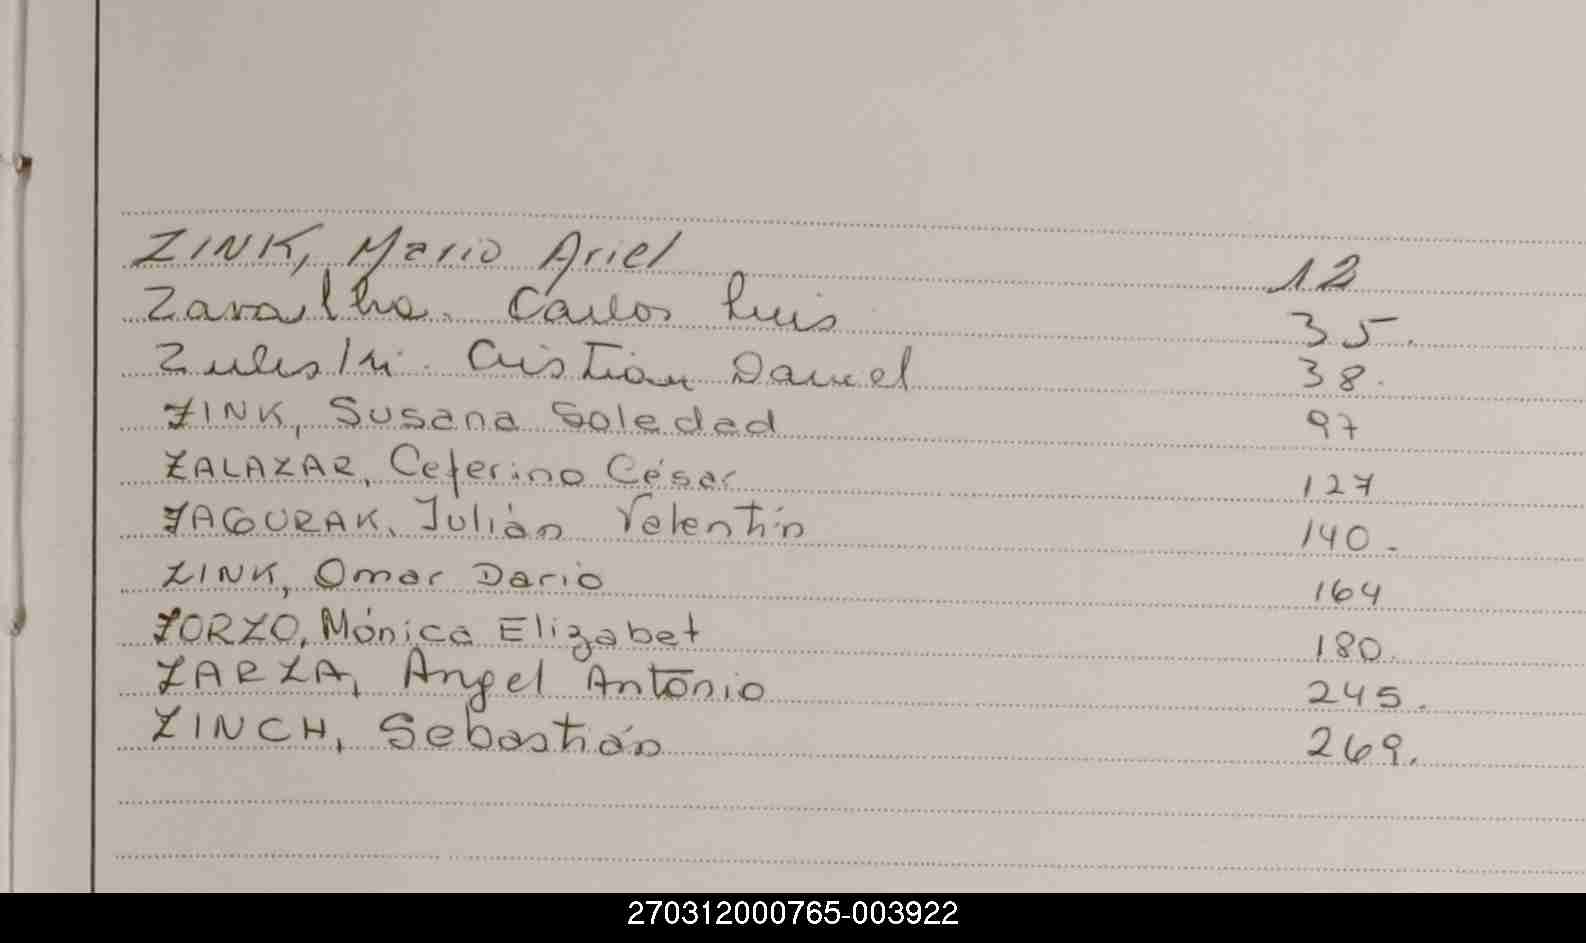 ZINK, Mario Ariel 12
Zaralho. Carlos Luis 35.
Zuleski. Cristian Daniel 38.
ZINK, Susana Soledad 97
ZALAZAR, Ceferino César 127
ZAGURAK, Julián Valentín 140.
ZINK, Omar Dario 164
ZORZO, Mónica Elizabet 180.
ZARZA, Angel Antonio 245.
ZINCH, Sebastián 269.
270312000765-003922